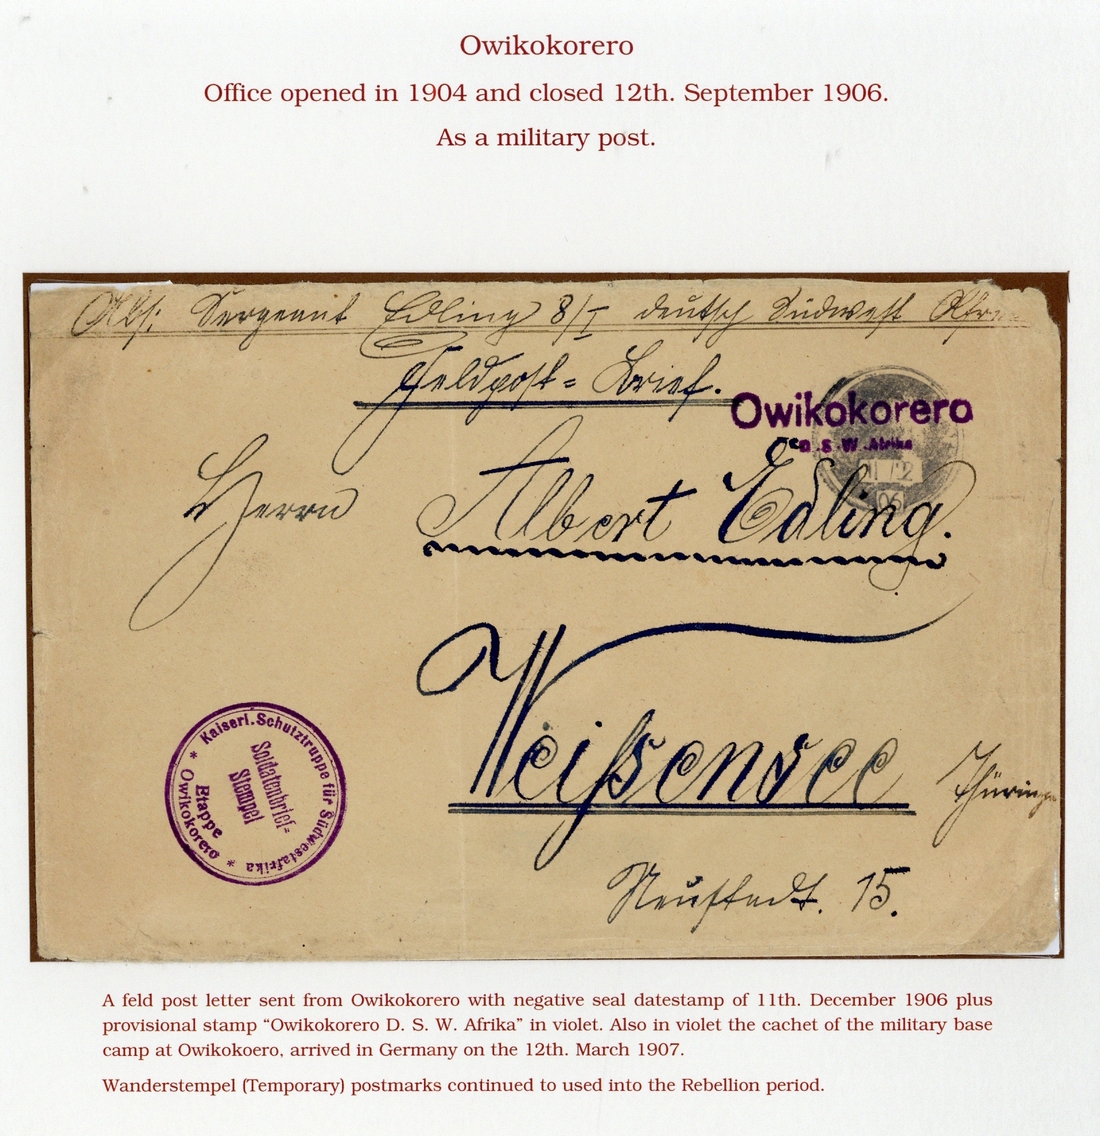 Owikokorero
Office opened in 1904 and closed 12th. September 1906.
As a military post.
Abs: Sergeant Edling 8/I deutsch Südwest Afri
Feldpost = Brief.
Owikokorero
D. S. W. Afrika
11/2
06
Herrn Albert Edling.
Weißensee
Thüringen
Neustadt. 15.
* Kaiserl. Schutztruppe für Südwestafrika *
Soldatenbrief-
Stempel
Etappe
Owikokorero
A feld post letter sent from Owikokorero with negative seal datestamp of 11th. December 1906 plus
provisional stamp “Owikokorero D. S. W. Afrika” in violet. Also in violet the cachet of the military base
camp at Owikokoero, arrived in Germany on the 12th. March 1907.
Wanderstempel (Temporary) postmarks continued to used into the Rebellion period.